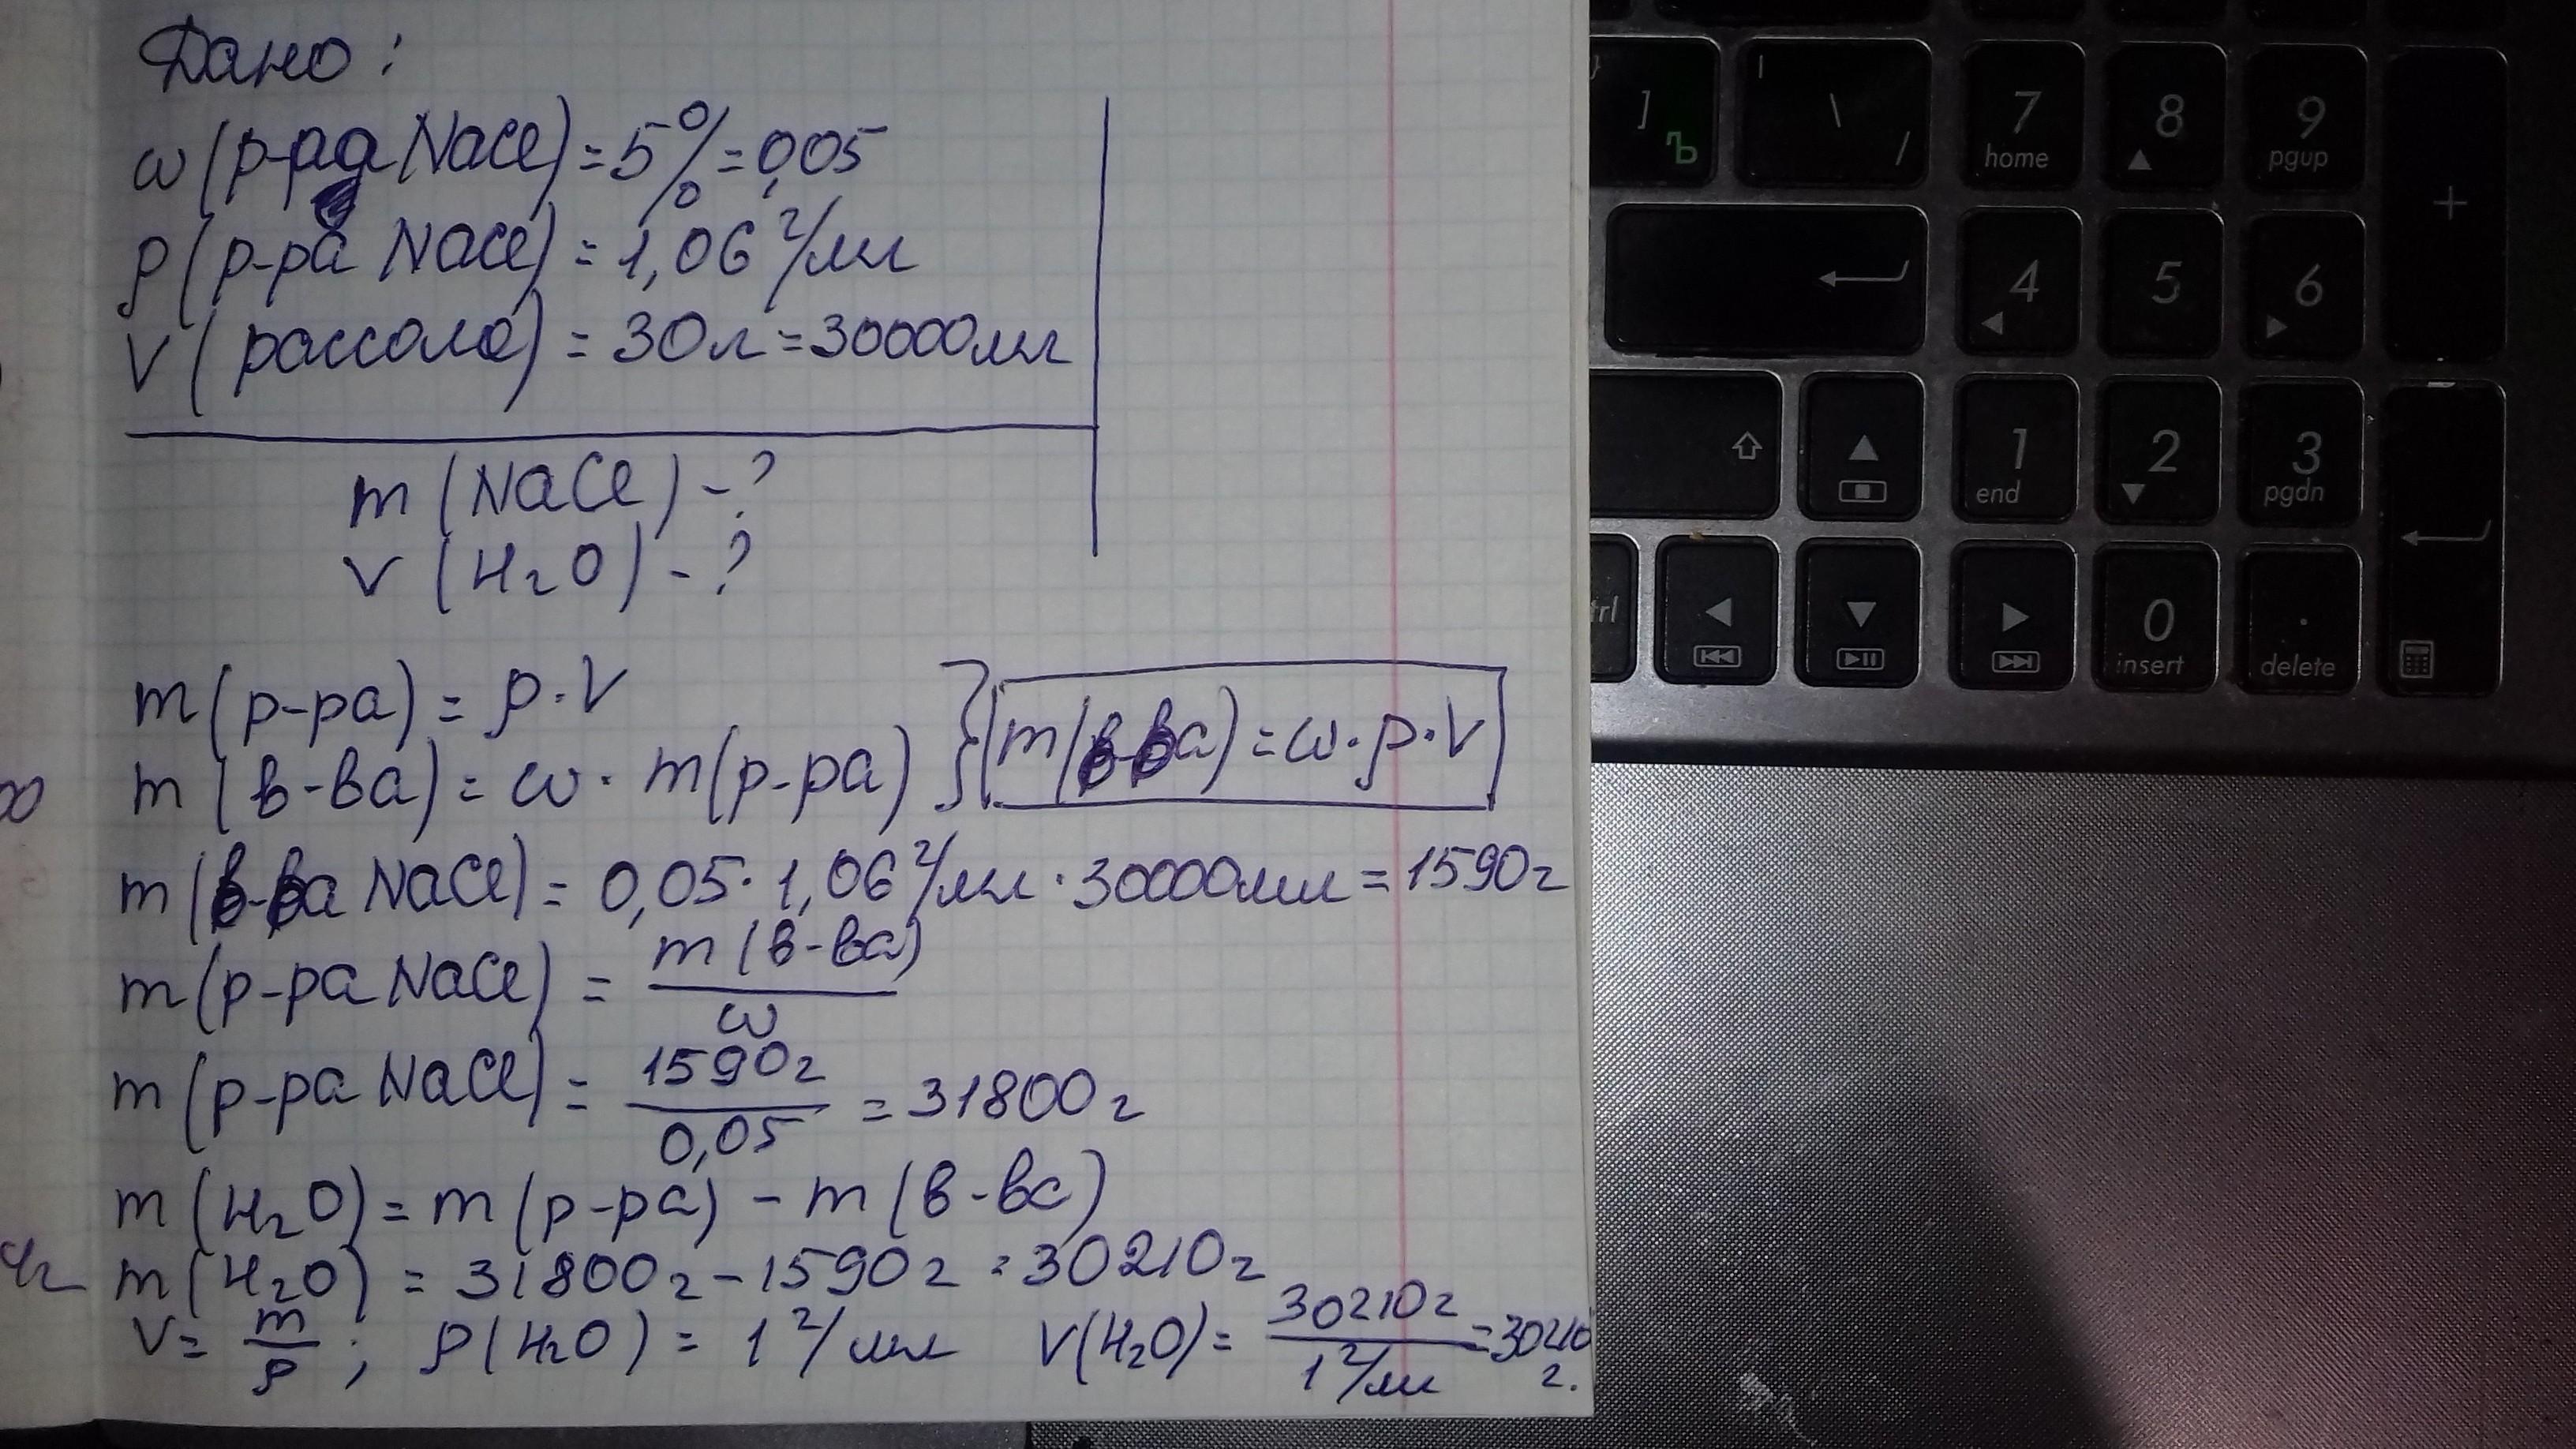 Дано:
ω(р-ра NaCl) = 5% = 0,05
ρ(р-ра NaCl) = 1,06 г/мл
V(рассола) = 30л = 30000мл
m(NaCl) - ?
V(H₂O) - ?
m(р-ра) = ρ·V
m(в-ва) = ω · m(р-ра) } m(в-ва) = ω·ρ·V
m(в-ва NaCl) = 0,05 · 1,06 г/мл · 30000мл = 1590г
m(р-ра NaCl) = m(в-ва) / ω
m(р-ра NaCl) = 1590г / 0,05 = 31800г
m(H₂O) = m(р-ра) - m(в-ва)
m(H₂O) = 31800г - 1590г = 30210г
V = m/ρ ; ρ(H₂O) = 1 г/мл V(H₂O) = 30210г / 1 г/мл = 30210
г.
] Ъ
| \ /
7 home
8
9 pgup
+
4
5
6
1 end
2
3 pgdn
trl
0 insert
. delete